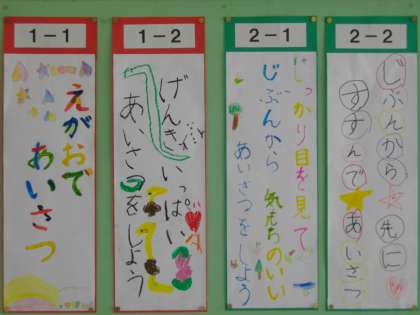 1-1
えがおで
あいさつ
1-2
げんきいっぱい
あいさつをしよう
2-1
しっかり目を見て
じぶんから 気もちのいい
あいさつをしよう
2-2
じぶんから 先に
すすんで あいさつ